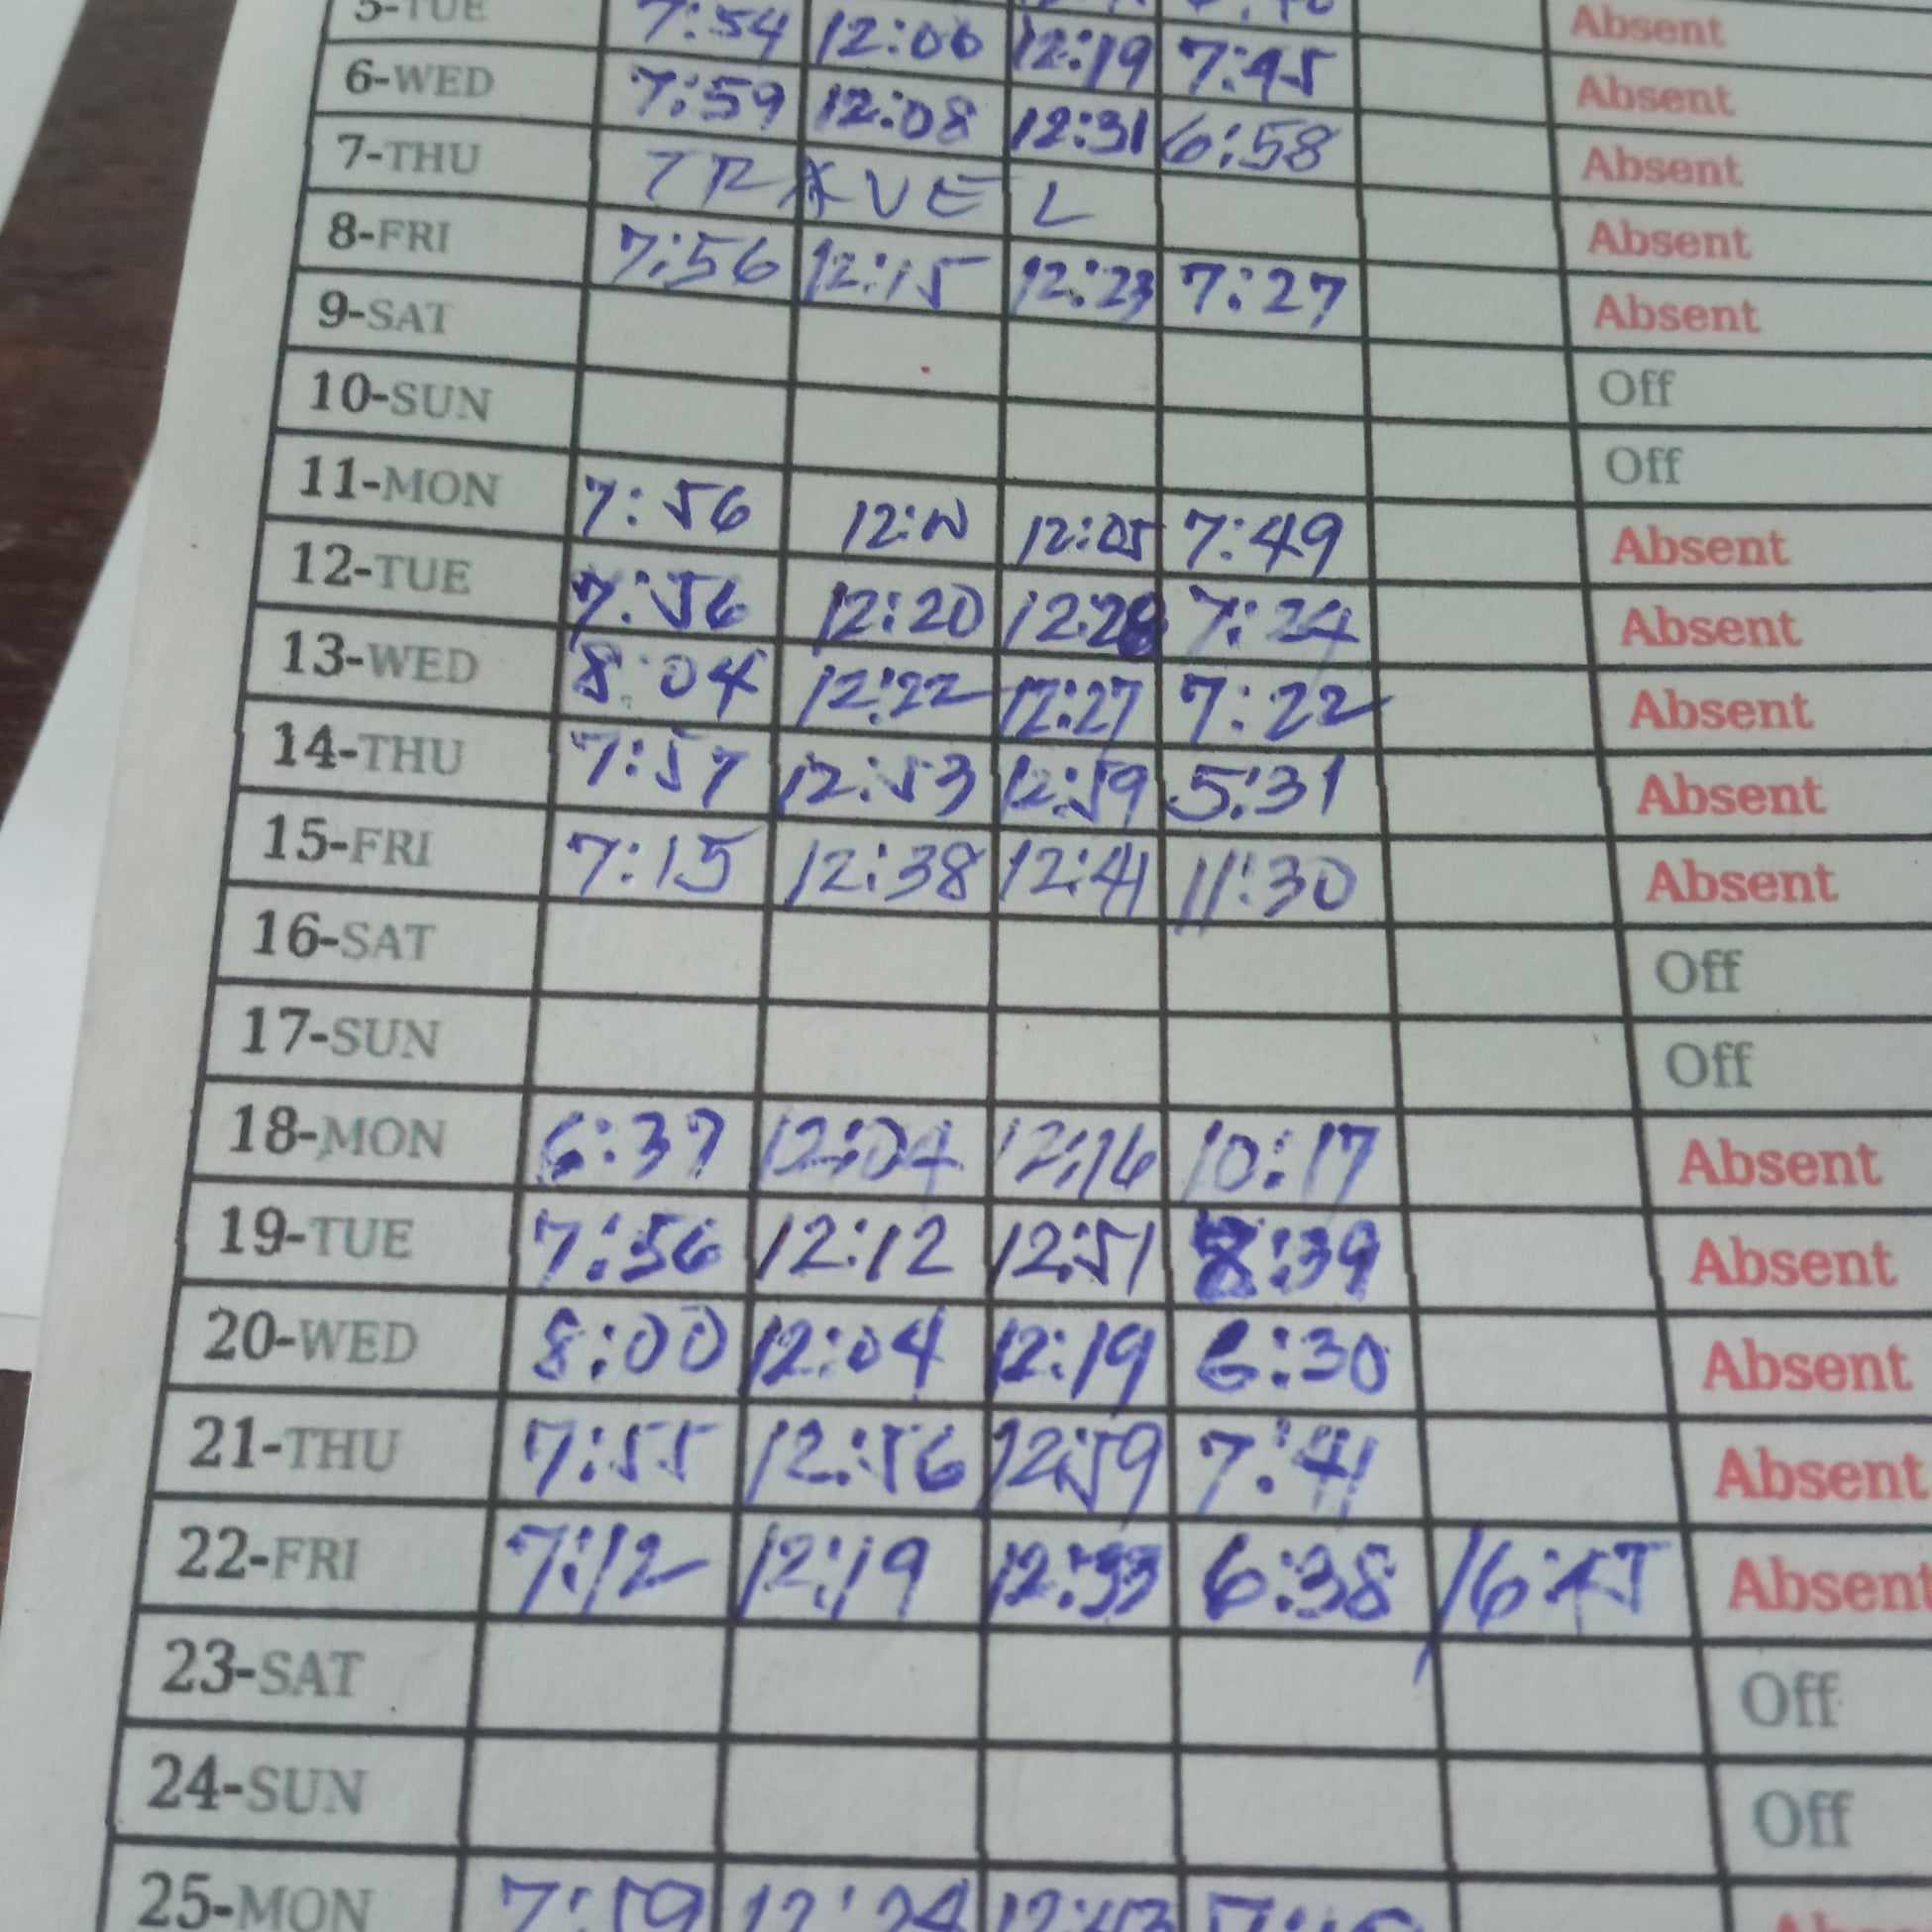 5-TUE 7:54 12:06 12:19 7:45 Absent
6-WED 7:59 12:08 12:31 6:58 Absent
7-THU TRAVEL Absent
8-FRI 7:56 12:15 12:23 7:27 Absent
9-SAT Off
10-SUN Off
11-MON 7:56 12:05 7:49 Absent
12-TUE 7:56 12:20 7:24 Absent
13-WED 8:04 12:22 12:27 7:22 Absent
14-THU 7:57 12:53 12:59 5:31 Absent
15-FRI 7:15 12:38 12:41 11:30 Absent
16-SAT Off
17-SUN Off
18-MON 6:37 12:04 12:16 10:17 Absent
19-TUE 7:56 12:12 12:51 8:39 Absent
20-WED 8:00 12:04 12:19 6:30 Absent
21-THU 7:55 12:56 12:59 7:41 Absent
22-FRI 7:12 12:19 12:33 6:38 16:45 Absent
23-SAT Off
24-SUN Off
25-MON 7:59 12:24 12:43